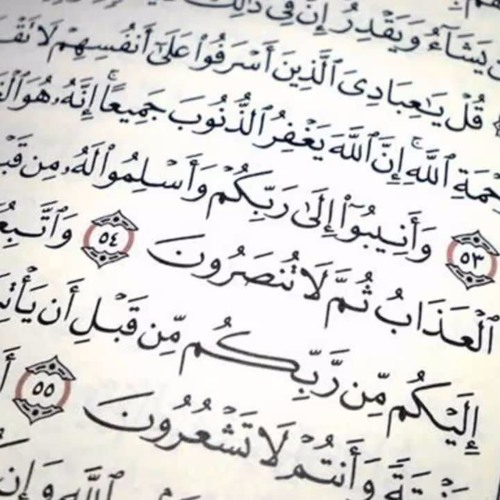 يَشَآءُ وَيَقْدِرُ إِنَّ فِى ذَٰلِكَ
قُلْ يَٰعِبَادِىَ ٱلَّذِينَ أَسْرَفُوا۟ عَلَىٰٓ أَنفُسِهِمْ لَا
ٱللَّهِ ۚ إِنَّ ٱللَّهَ يَغْفِرُ ٱلذُّنُوبَ جَمِيعًا ۚ إِنَّهُۥ هُوَ
٥٣ وَأَنِيبُوٓا۟ إِلَىٰ رَبِّكُمْ وَأَسْلِمُوا۟ لَهُۥ مِن
ٱلْعَذَابُ ثُمَّ لَا تُنصَرُونَ ٥٤
إِلَيْكُم مِّن رَّبِّكُم مِّن قَبْلِ أَن
وَأَنتُمْ لَا تَشْعُرُونَ ٥٥
ٱللَّهِ وَإِن